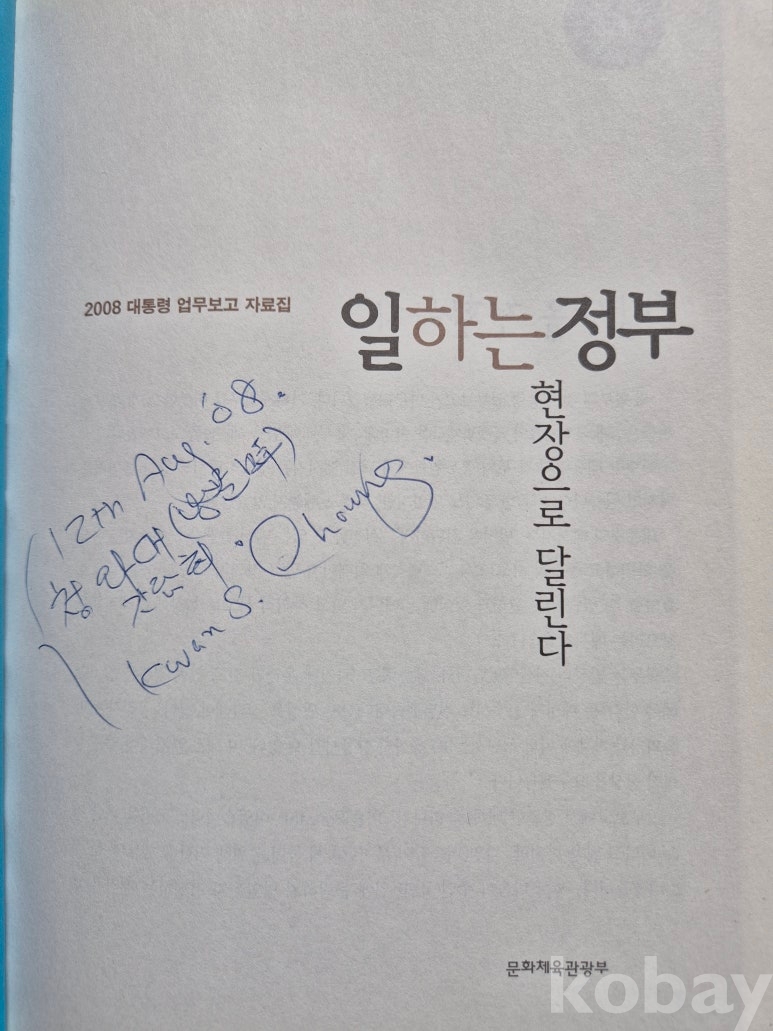 2008 대통령 업무보고 자료집
일하는 정부
현장으로 달린다
12th Aug. '08.
청와대
Kwan S. Chowhg.
문화체육관광부
kobay